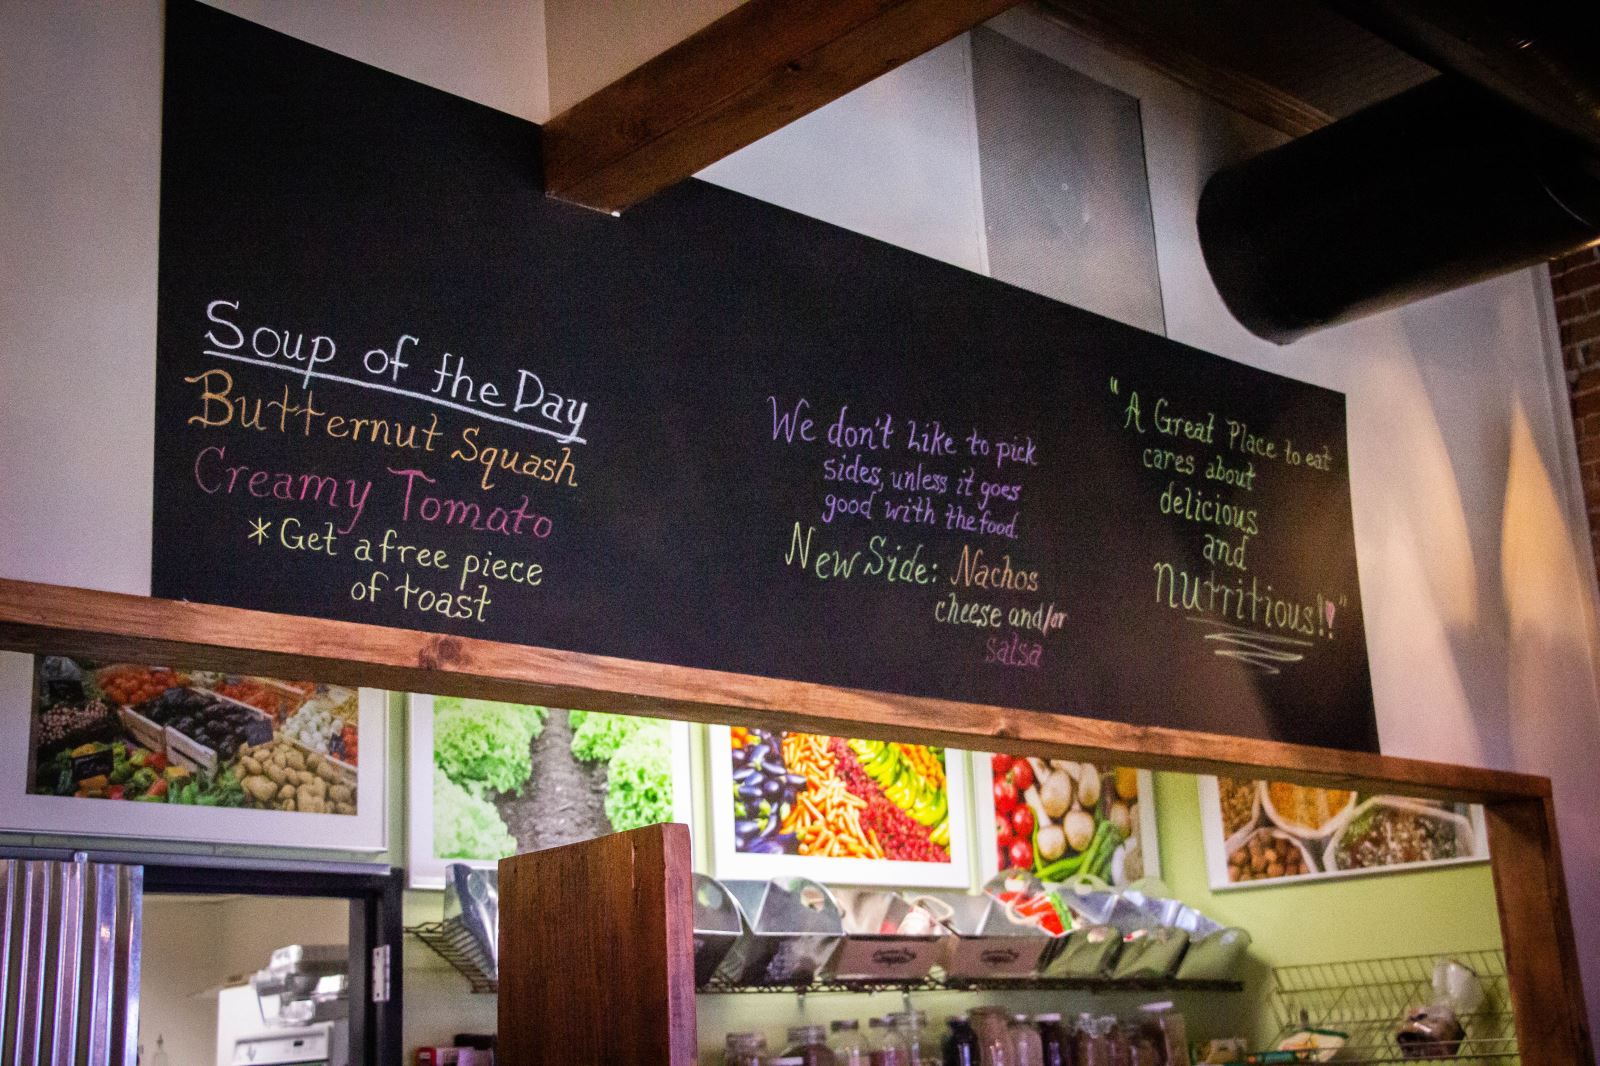 Soup of the Day
Butternut Squash
Creamy Tomato
*Get a free piece
of toast
We don't like to pick
sides, unless it goes
good with the food.
New Side: Nachos
cheese and/or
salsa
"A Great Place to eat
cares about
delicious
and
nutritious!!"